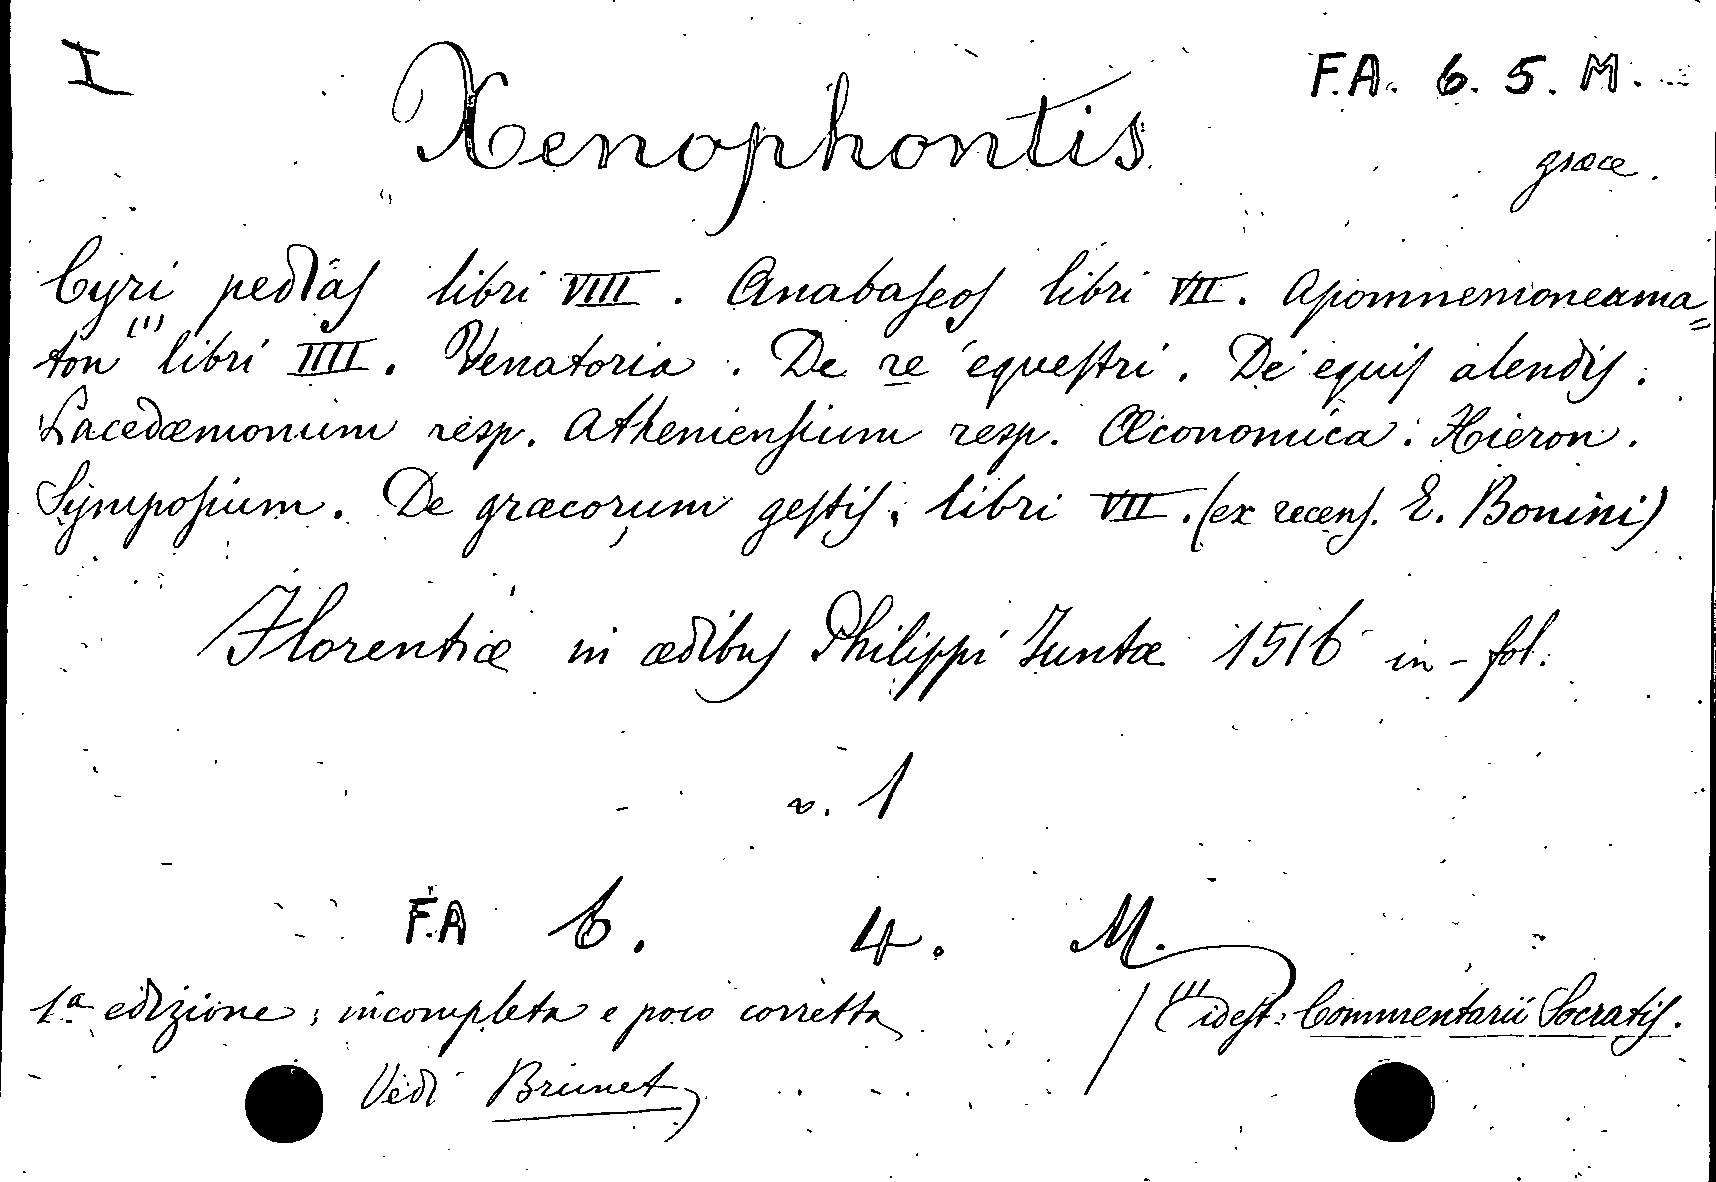 I
F.A. 6. 5. M.
Xenophontis
græce.
Cyri pedias libri VIIII. Anabaseos libri VII. Apomnemoneuma=
ton (1) libri IIII. Venatoria. De re equestri. De equis alendis.
Lacedæmonum resp. Atheniensium resp. Œconomica. Hieron.
Symposium. De græcorum gestis, libri VII. (ex recens. E. Bonini)
Florentiæ in ædibus Philippi Juntæ 1516 in-fol.
v. 1
F.A 6. 4. M.
1ª edizione; incompleta e poco corretta
(1) idest: Commentarii Socratis.
Vedi Brunet